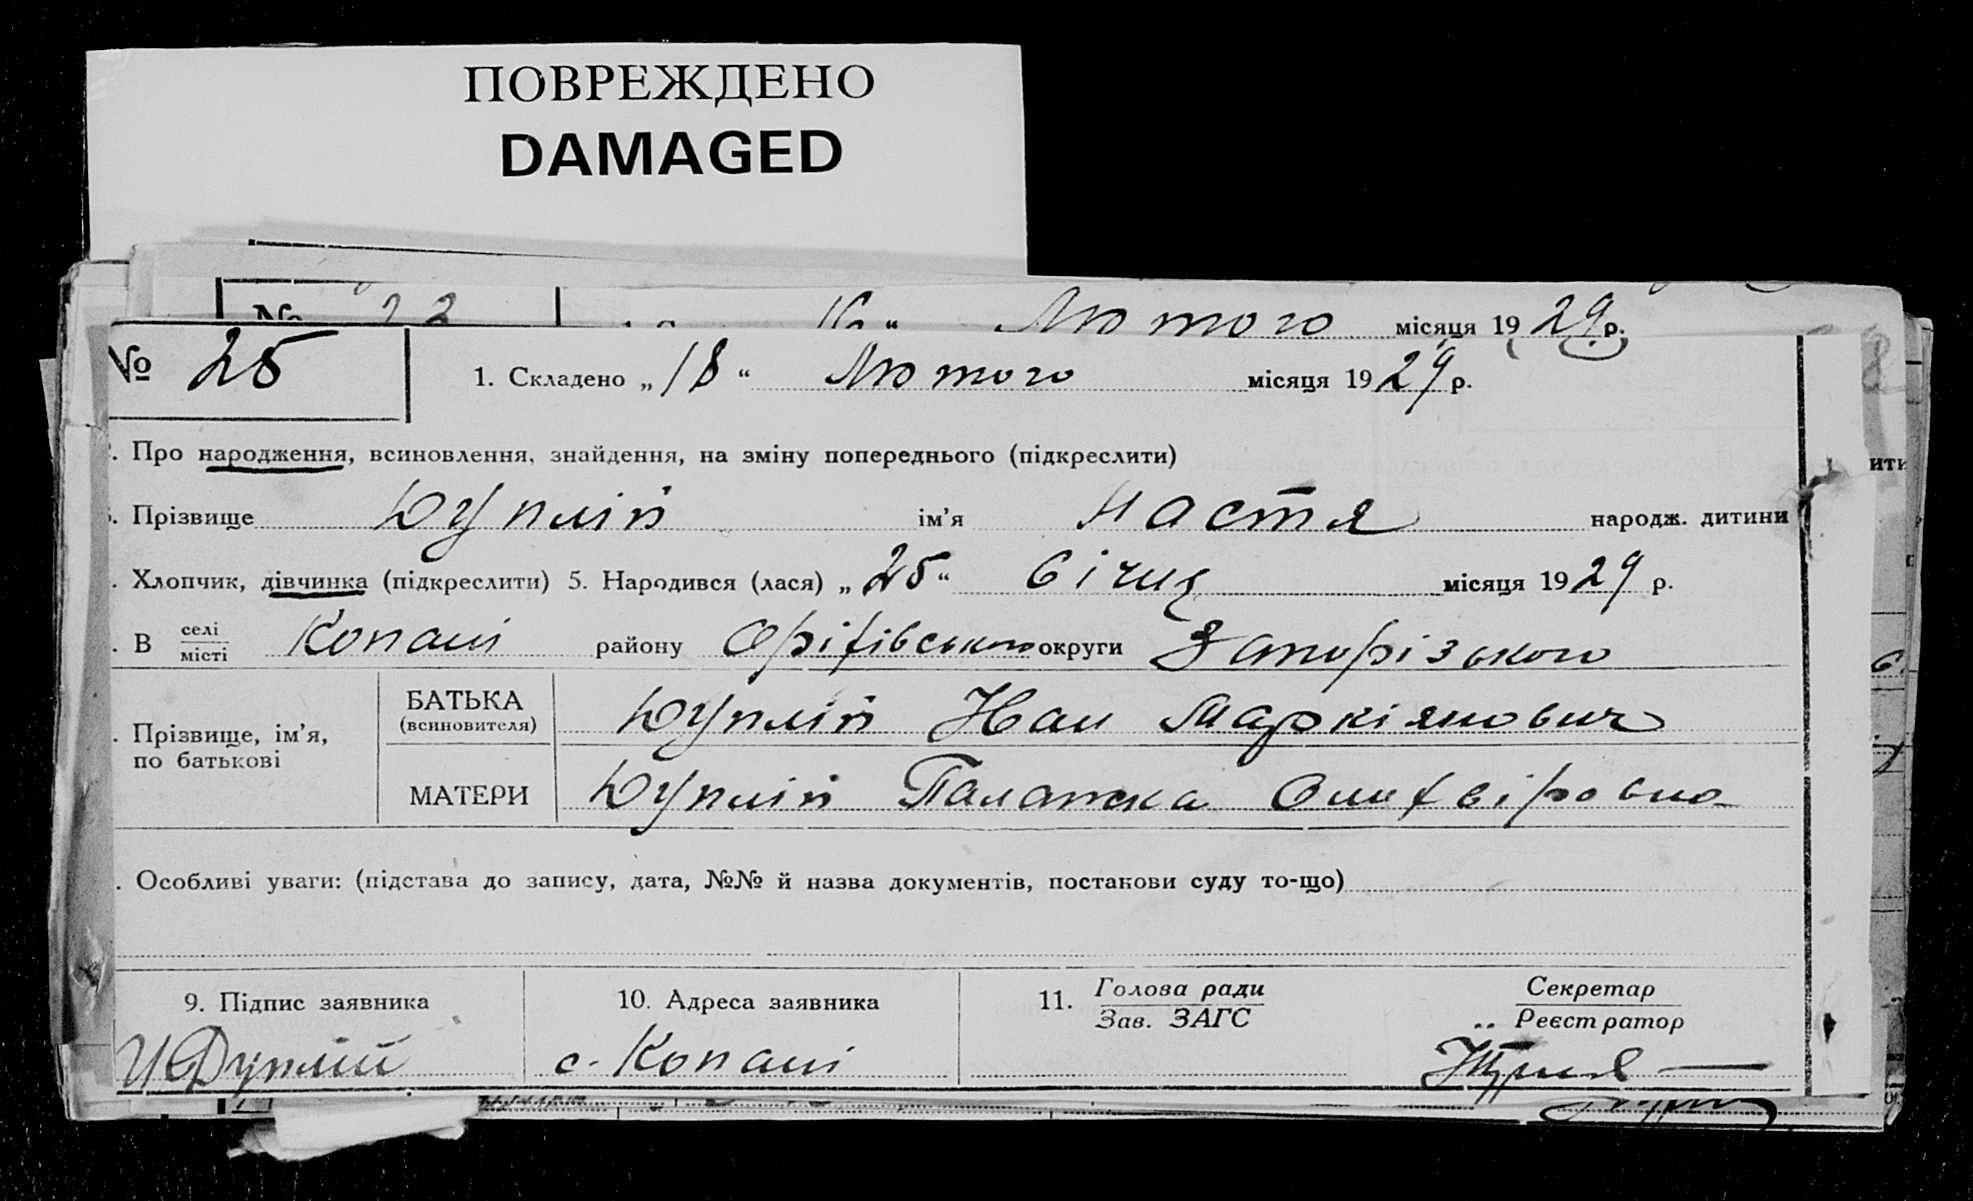 ПОВРЕЖДЕНО
DAMAGED
№ 22
Лютого місяця 1929 р.
№ 25
1. Складено „18“ Лютого місяця 1929 р.
. Про народження, всиновлення, знайдення, на зміну попереднього (підкреслити)
. Прізвище Дуплій ім’я Настя народж. дитини
. Хлопчик, дівчинка (підкреслити) 5. Народився (лася) „25“ Січня місяця 1929 р.
. В селі місті Копані району Оріхівського округи Запорізького
. Прізвище, ім’я, по батькові
БАТЬКА (всиновителя) Дуплій Иван Маркіянович
МАТЕРИ Дуплій Палажка
. Особливі уваги: (підстава до запису, дата, №№ й назва документів, постанови суду то-що)
9. Підпис заявника
10. Адреса заявника
11. Голова ради Зав. ЗАГС
Секретар Реєстратор
И Дуплій
с. Копані